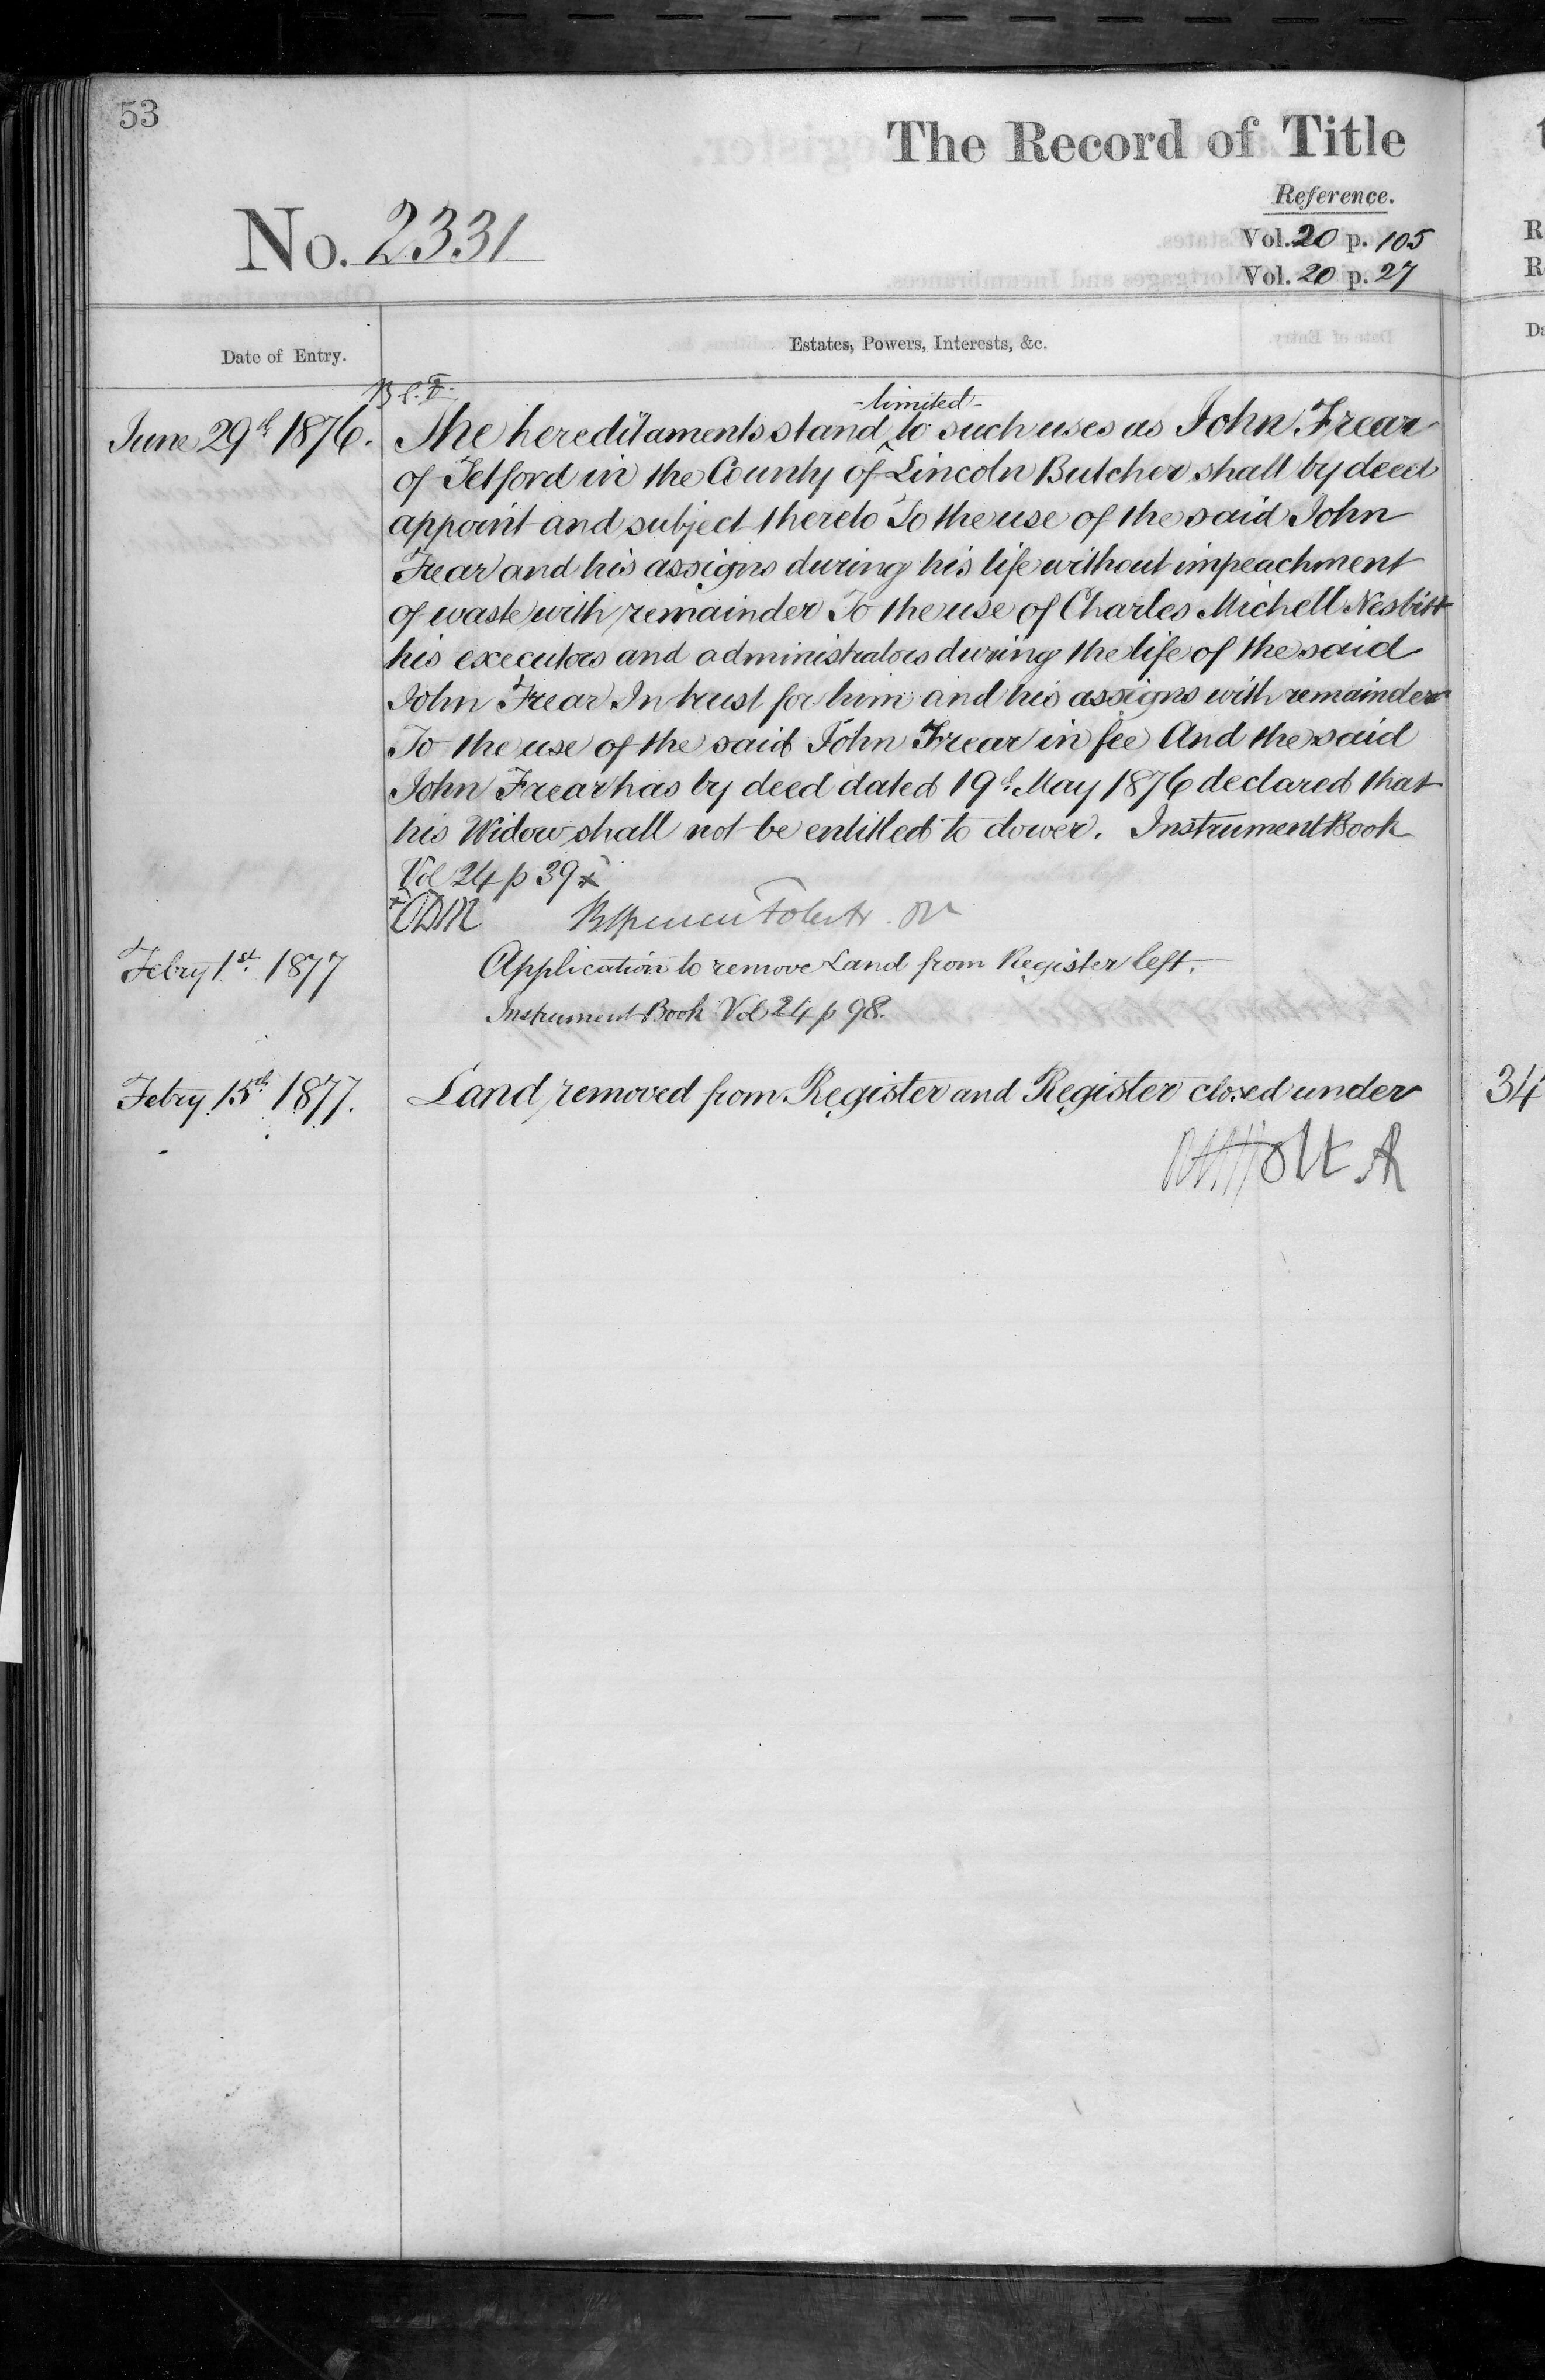 53
The Record of Title
Reference.
No. 2331
Vol. 20 p. 105
Vol. 20 p. 27
Date of Entry.
Estates, Powers, Interests, &c.
-limited-
June 29th 1876. The hereditaments stand ^ to such uses as John Frear
of Tetford in the County of Lincoln Butcher shall by deed
appoint and subject thereto To the use of the said John
Frear and his assigns during his life without impeachment
of waste with remainder To the use of Charles Michell Nesbitt
his executors and administrators during the life of the said
John Frear In trust for him and his assigns with remainder
To the use of the said John Frear in fee And the said
John Frear has by deed dated 19th May 1876 declared that
his Widow shall not be entitled to dower. Instrument Book
Vol 24 p 39 x
Febry 1st 1877 Application to remove Land from Register left.
Instrument Book Vol 24 p 98.
Febry 15th 1877. Land removed from Register and Register closed under
Holt
34